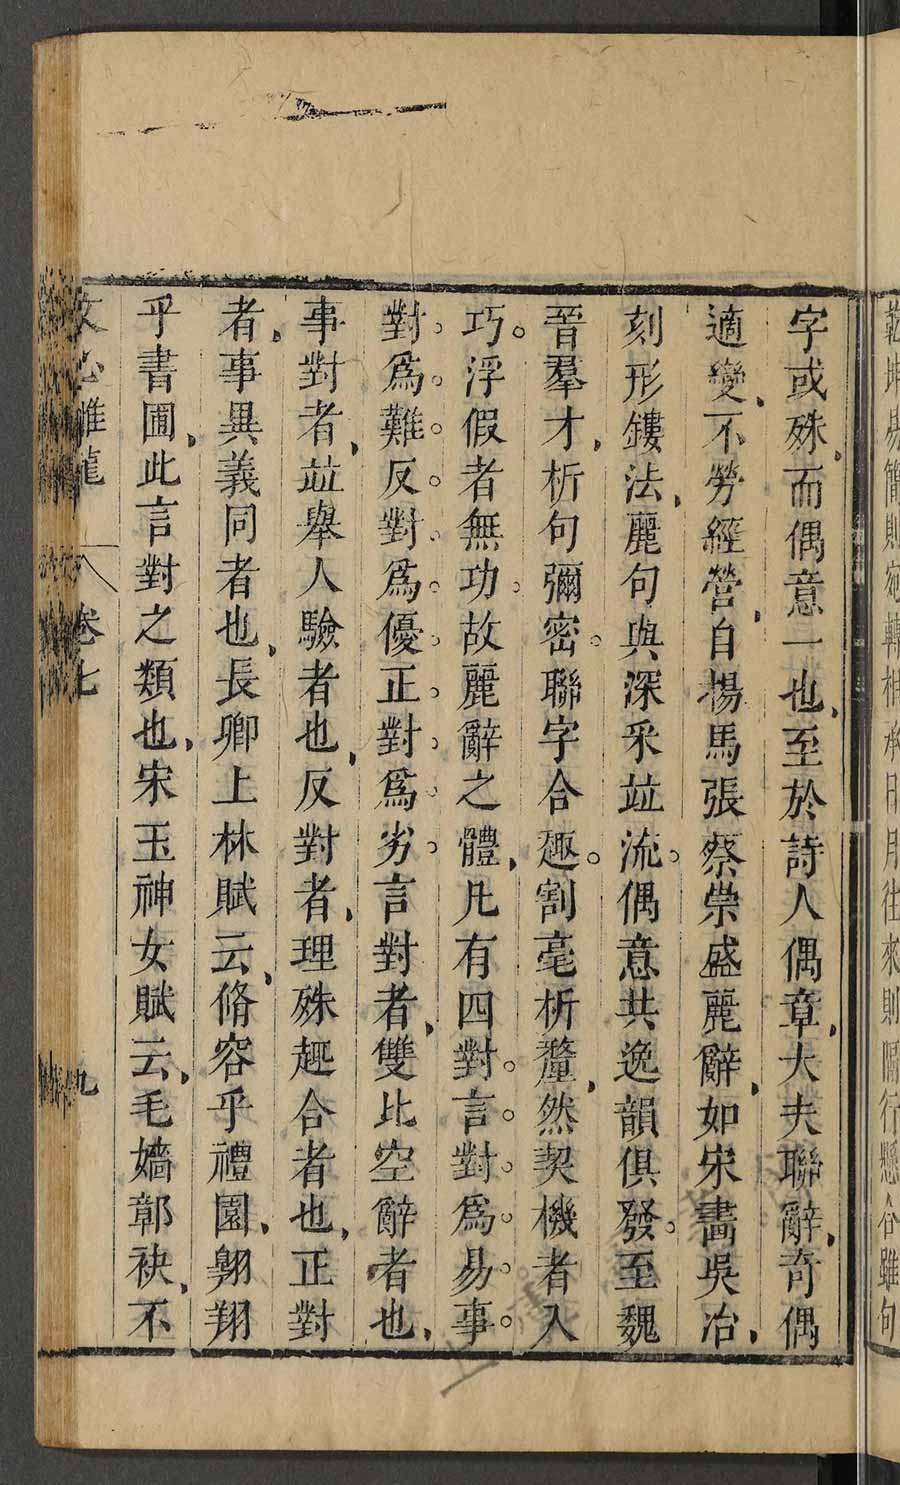 乾坤易簡則宛轉相承日月往來則隔行懸合雖句
字或殊而偶意一也至於詩人偶章大夫聯辭奇偶
適變不勞經營自揚馬張蔡崇盛麗辭如宋畵吳冶
刻形鏤法麗句與深采竝流偶意共逸韻俱發至魏
晉羣才析句彌密聯字合趣割毫析釐然契機者入
巧浮假者無功故麗辭之體凡有四對言對爲易事
對爲難反對爲優正對爲劣言對者雙比空辭者也
事對者竝舉人驗者也反對者理殊趣合者也正對
者事異義同者也長卿上林賦云脩容乎禮園翱翔
乎書圃此言對之類也宋玉神女賦云毛嬙鄣袂不
文心雕龍 卷七 九